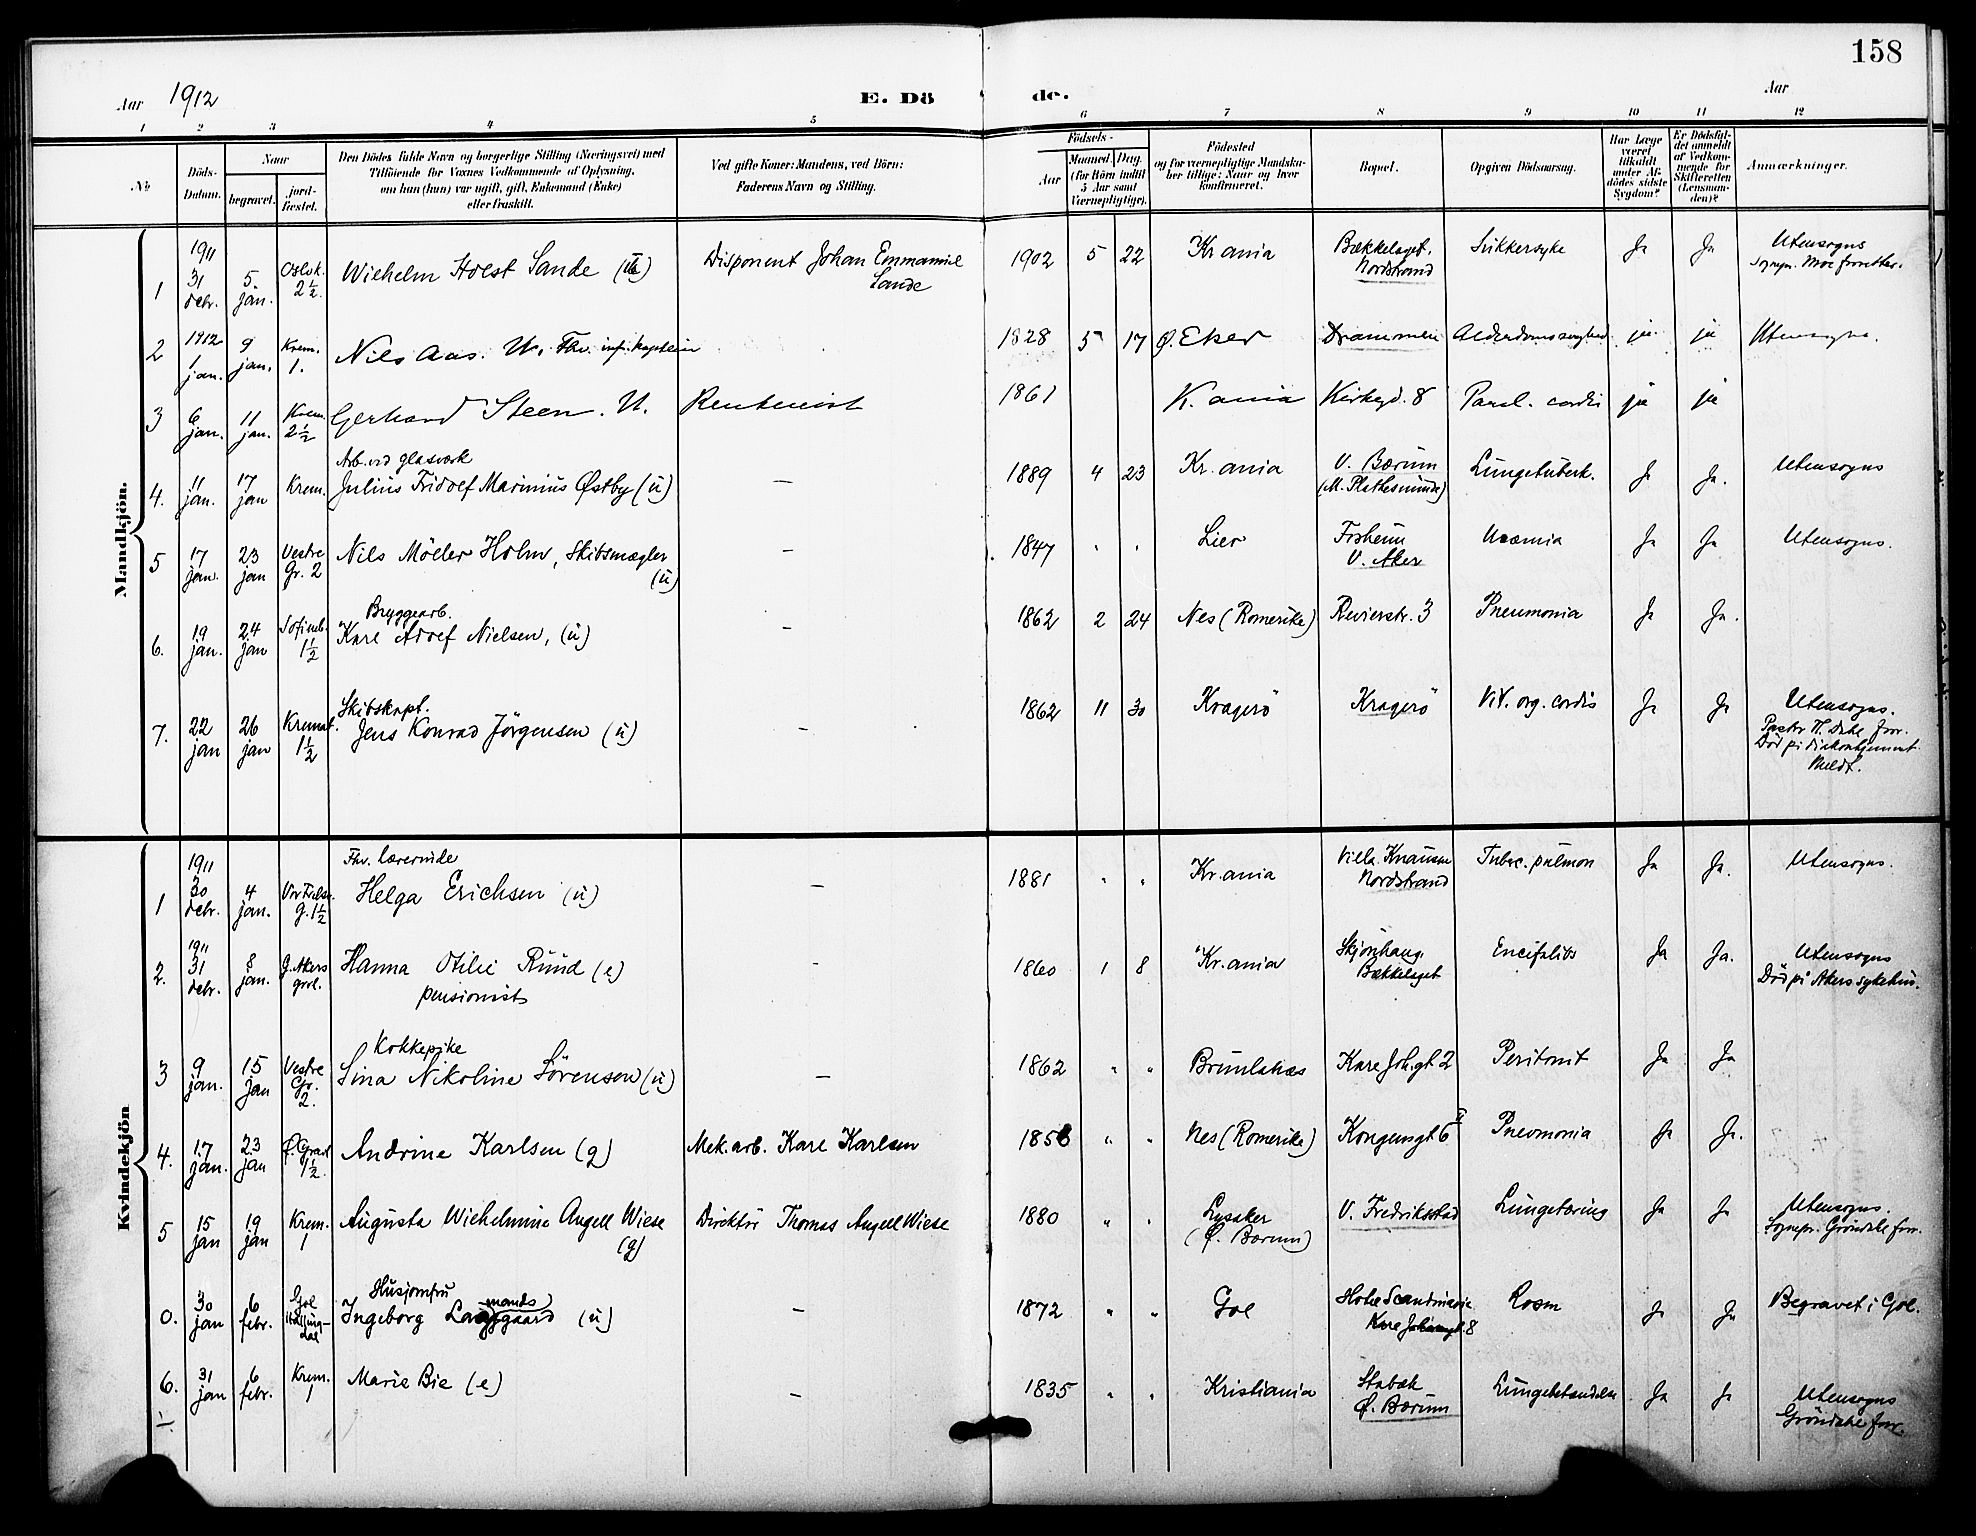 158
Aar 1912
E. Dö de.
Aar
1 2 3 4 5 6 7 8 9 10 11 12
No
Döds-Datum.
Naar
begravet.
jord-fæstet.
Den Dödes fulde Navn og borgerlige Stilling (Næringsvei) med
Tilföiende for Voxnes Vedkommende af Oplysning,
om han (hun) var ugift, gift, Enkemand (Enke)
eller fraskilt.
Ved gifte Koner: Mandens, ved Börn:
Faderens Navn og Stilling.
Födsels-
Aar
Maaned. Dag.
(for Börn indtil
5 Aar samt
Værnepligtige).
Födested
og for værnepligtige Mandska-
ber tillige: Naar og hvor
konfirmeret.
Bopæl.
Opgiven Dödsaarsag.
Har Læge
været
tilkaldt
under Af-
dödes sidste
Sygdom?
Er Dödsfal-
det anmeldt
af Vedkom-
mende for
Skifteretten
(Lensman-
den)?
Anmærkninger.
Mandkjön.
1 1911 31 debr. 5. jan. Oslo k. 2½ Wilhelm Holst Sande (u) Disponent Johan Emmanuel Sande 1902 5 22 Kr ania Bækkelaget. Nordstrand Sukkersyke Ja Ja Utensogns Sognpr. Moe forretter.
2 1912 1 jan. 9 jan. Krem. 1. Nils Aas. U. Fhv. inf. kaptein 1828 5 17 Ø. Eker Drammen Alderdomssvaghed ja ja Utensogns.
3 6 jan. 11 jan. Krem. 2½ Gerhard Steen. U. Rentenist 1861 K. ania Kirkegd. 8 Paral. cordis ja ja
4. 11 jan. 17 jan Krem. Arb. ved glasværk Julius Fridolf Marinius Østby (u) — 1889 4 23 Kr. ania V. Bærum (M. Plathesminde) Lungetuberk. Ja Ja. Utensogns
5 17 jan. 23 jan Vestre Gr. 2 Nils Möller Holm, Skibsmægler (u) — 1847 " " Lier V. Aker Uræmia Ja Ja Utensogns.
6. 19 jan. 24 jan Sofienb. 1½ Bryggearb. Karl Adolf Nielsen, (u) — 1862 2 24 Nes (Romerike) Revierstr. 3 Pneumonia Ja Ja.
7. 22 jan 26 jan Kremat. 1½ Skibskapt. Jens Konrad Jörgensen (u) — 1862 11 30 Kragerö Kragerö Vit. org. cordis Ja Ja Utensogns. Pastor H. Dahl forr. Död på diakonhjemmet. Meldt.
Kvindekjön
1 1911 30 debr. 4 jan. Vor Frelser. G. 1½ Fhv. lærerinde Helga Erichsen (u) — 1881 " " Kr. ania Villa Knausen Nordstrand Tuberc. pulmon Ja Ja. Utensogns.
2. 1911 31 debr. 8 jan. G. Akers grvl. Hanna Otilie Ruud (e) pensionist — 1860 1 8 Kr. ania Bækkelaget Encifalitis Ja Ja. Utensogns Död på Akers sykehus.
3 9 jan. 15 jan Vestre Gr. 2. Kokkepike Lina Nikoline Sörensen (u) — 1862 " " Brunlanæs Karl Joh. gt 2 Peritonit Ja Ja
4. 17 jan. 23 jan Ø. Gravl 1½ Andrine Karlsen (g) Mek. arb. Karl Karlsen 1858 " " Nes (Romerike) Kongensgt 6 II Pneumonia Ja Ja.
5 15 jan 19 jan Krem. 1 Augusta Wilhelmine Angell Wiese (g) Direktör Thomas Angell Wiese 1880 " " Lysaker (Ø. Bærum) V. Fredriksstad Lungetæring Ja Ja Utensogns. Sognepr. Gröndahl forr.
0. 30 jan 6 febr. Gol Hallingdal Husjomfru Ingeborg Langgaard mands (u) — 1872 " " Gol Hotel Scandinavie Karl Johansgt. 8 Rosen Ja Ja Begravet i Gol.
6. 31 jan 6 febr. Krem. 1 Marie Bie (e) — 1835 " " Kristiania Stabæk Ø. Bærum Lungebetændelse Ja Ja Utensogns Gröndahl forr.